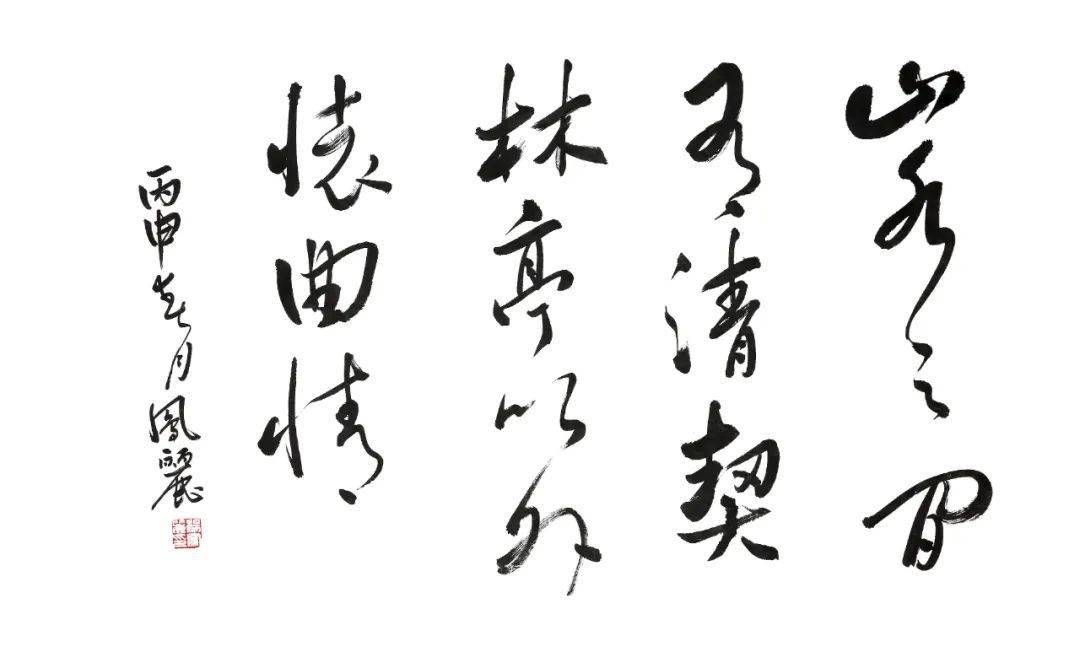 山水之間
有清契
林亭以外
懷曲情
丙申春月鳳麗